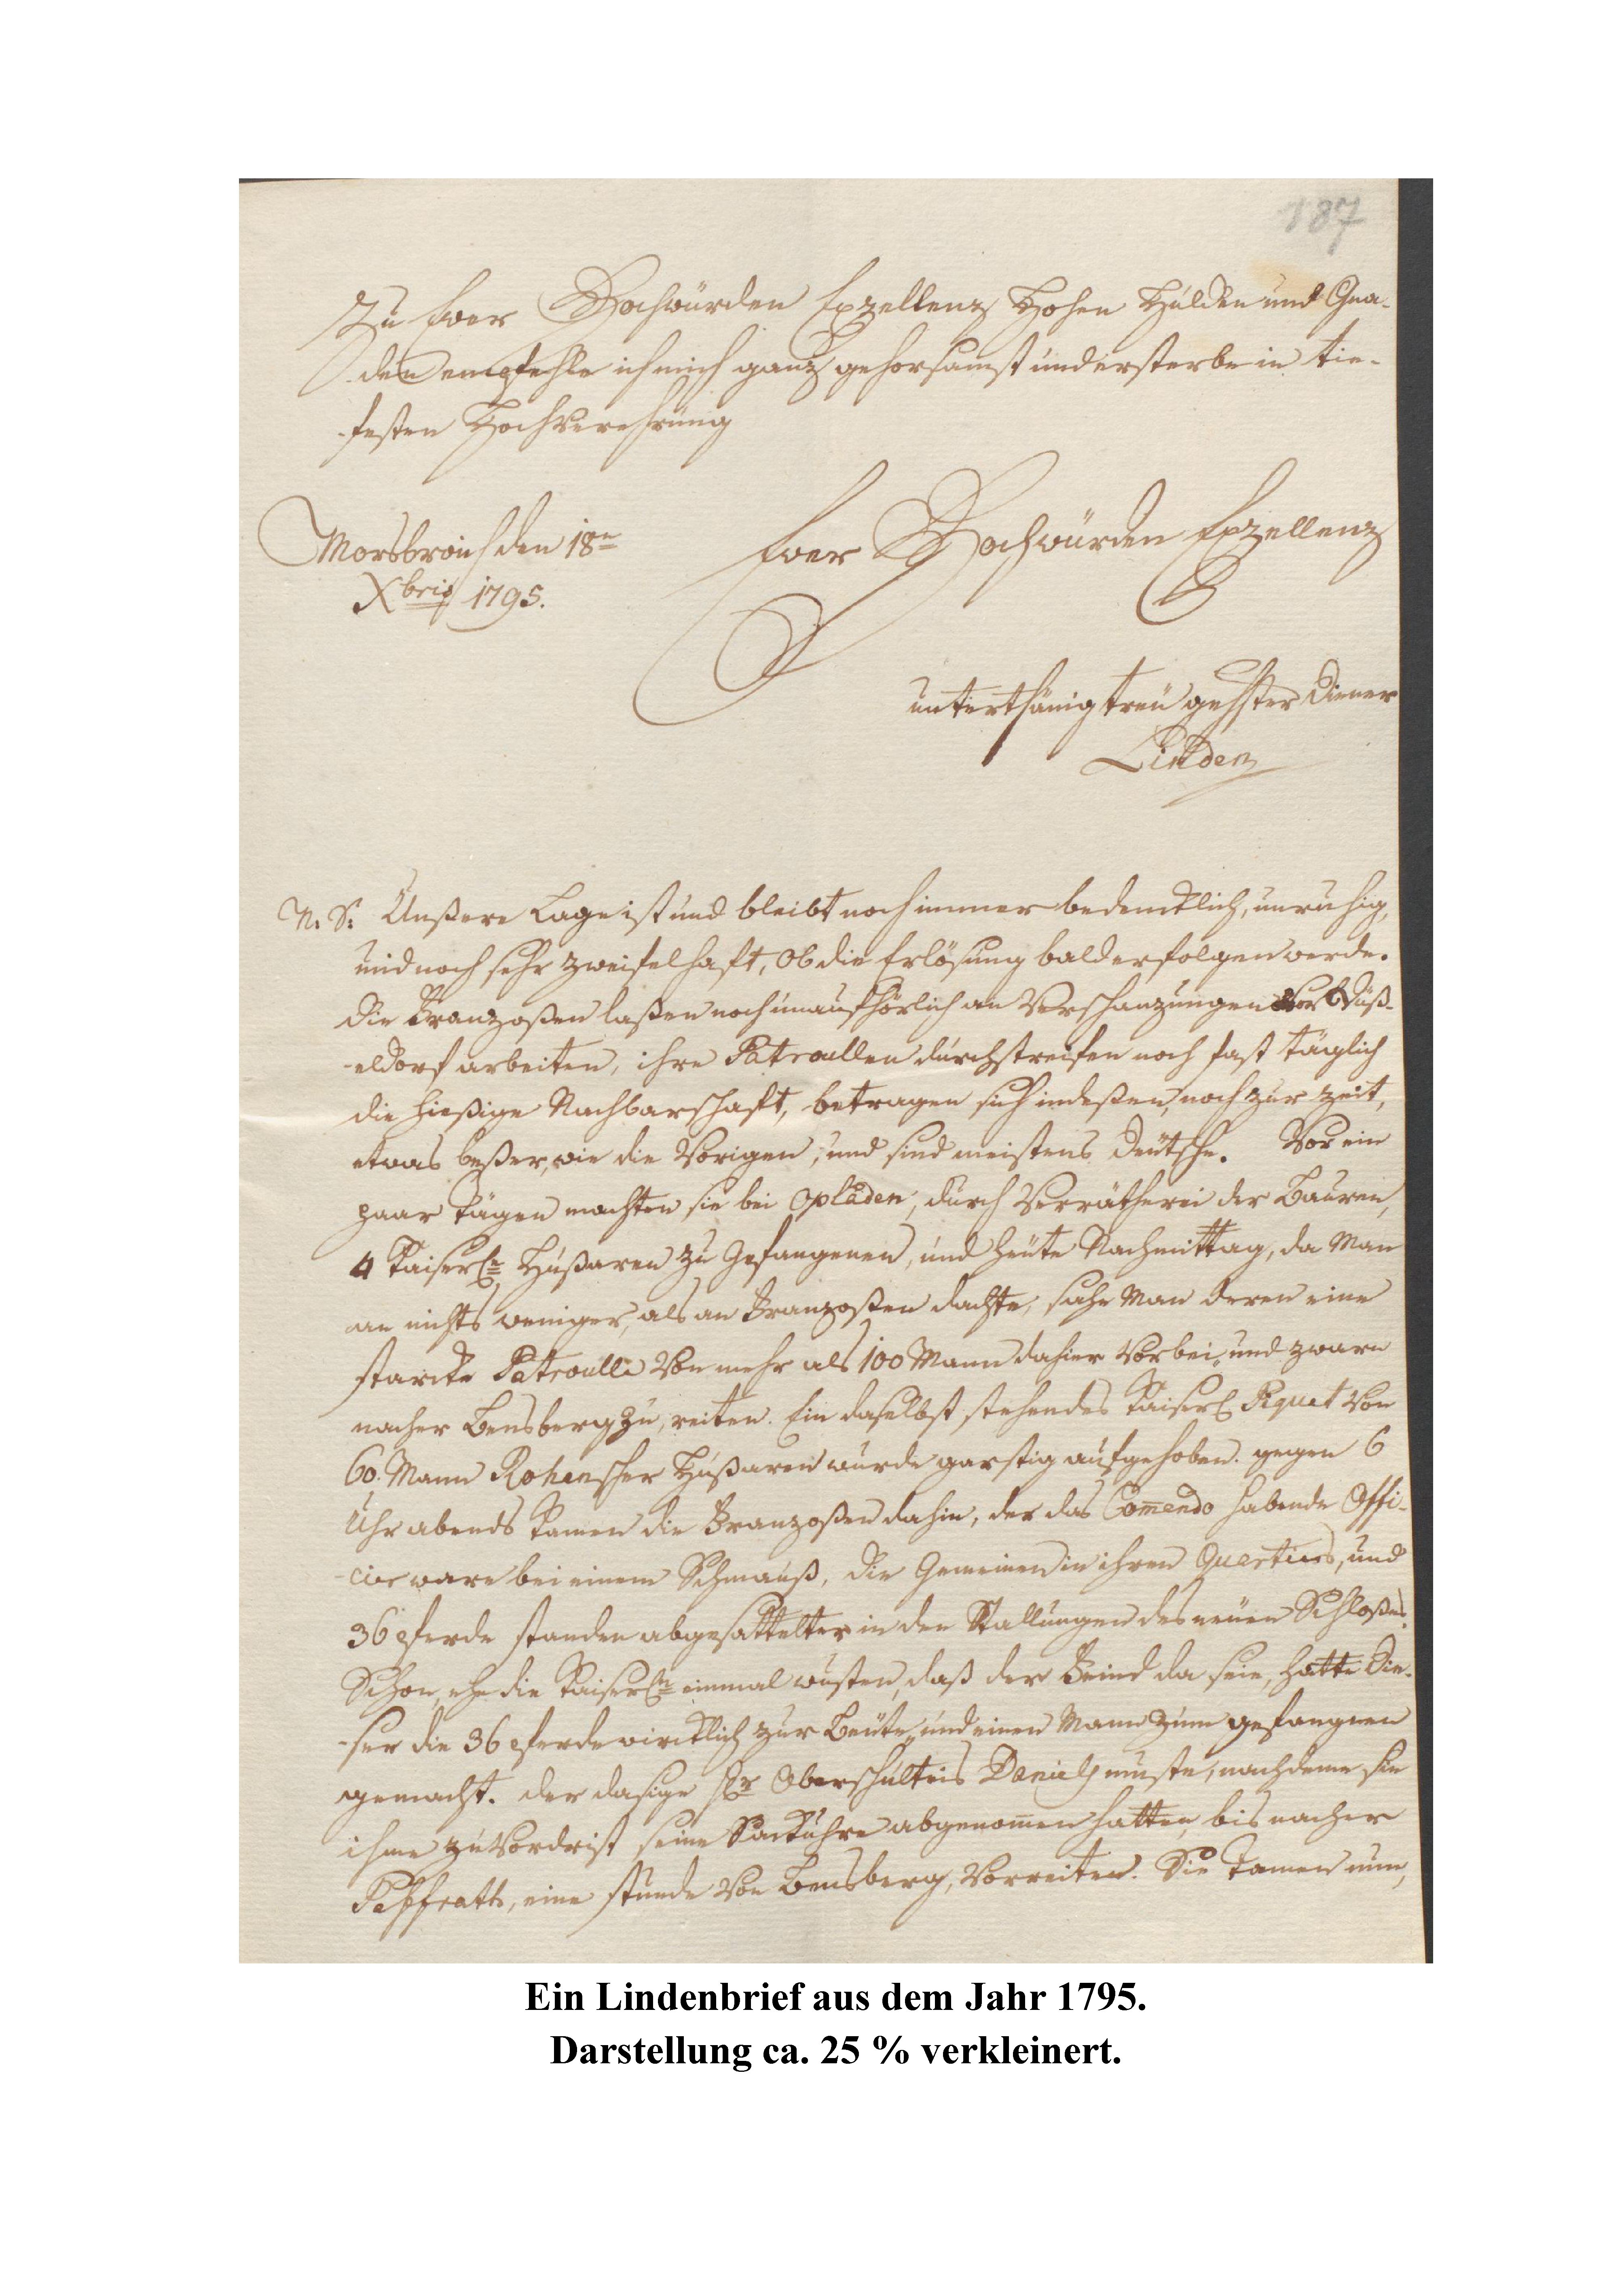 187
Zu Euer Hochwürden Exzellenz Hohen Hulden und Gna-
den empfehle ich mich ganz gehorsamst und ersterbe in tie-
festen Hochverehrung
Morsbroich den 18n
Xbris 1795.
Euer Hochwürden Exzellenz
unterthänig treu ghster Diener
Linden
N. S: Unßere Lage ist und bleibt noch immer bedencklich, unruhig,
und noch sehr zweifelhaft, ob die Erlösung bald erfolgen werde.
die Franzoßen laßen noch unaufhörlich an Verschanzungen vor Düß-
eldorf arbeiten, ihre Patroullen durchstreifen noch fast täglich
die hießige Nachbarschaft, betragen sich indeßen, noch zur zeit,
etwas beßer, wie die Vorigen, und sind meistens deutsche. Vor ein
paar tägen machten sie bei Opladen, durch Verrätherei der Bauren,
4 Kaiserle Hußaren zu Gefangenen, und heute Nachmittag, da Man
an nichts weniger, als an Franzoßen dachte, sahe Man deren eine
starcke Patroulle Von mehr als 100 Mann dahier Vorbei, und zwarn
nacher Bensberg zu, reiten. Ein daselbst stehendes Kaiserl Piquet Von
60. Mann Rohanscher Hußaren wurde garstig aufgehoben. gegen 6
Uhr abends kamen die Franzoßen dahin, der das Com̄ando habende Offi-
cier ware bei einem Schmauß, die Gemeinen in ihren Quartiers, und
36 pferde standen abgesattelter in den Stallungen des neuen Schloßes.
Schon, ehe die Kaiserln einmal wusten, daß der Feind da seie, hatte die-
ser die 36 pferde wircklich zur Beute, und einen Mann zum gefangnen
gemacht. der dasige Hr Oberschulteis Daniels muste, nachdeme sie
ihme zuvordrist seine Sackuhre abgenom̄en hatten, bis nacher
Paffrath, eine stunde Von Bensberg, Vorreiten. Sie kamen nun,
Ein Lindenbrief aus dem Jahr 1795.
Darstellung ca. 25 % verkleinert.